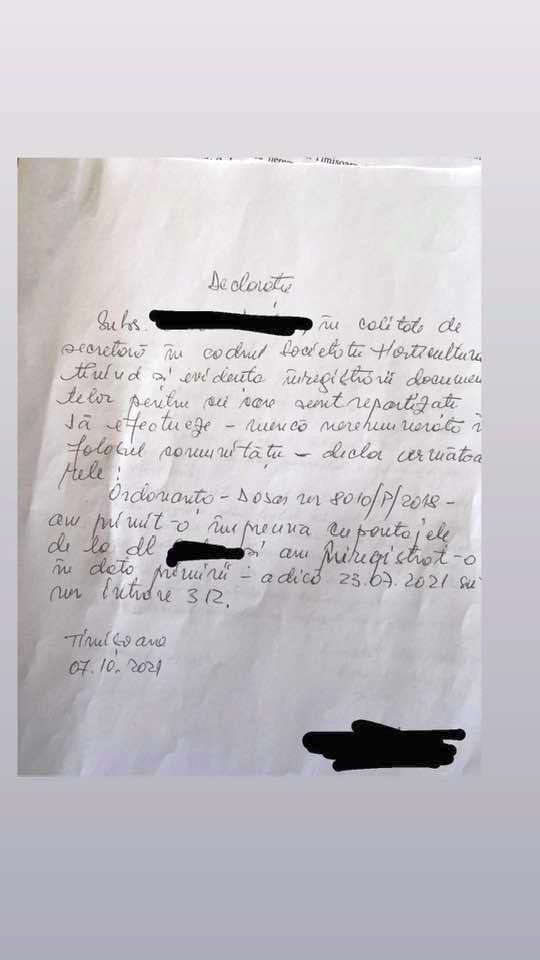 Timișoara
Declarație
Subs. în calitate de
secretară în cadrul Societății Horticultura
ținînd și evidența înregistrării documen
telor pentru cei care sunt repartizați
să efectueze - muncă neremunerată în
folosul comunității - declar următoa
rele:
Ordonanța - Dosar nr 8010/P/2018 -
am primit-o împreună cu pontajele
de la dl și am înregistrat-o
în data primirii - adică 23.07.2021 su
nr intrare 312.
Timișoara
07.10.2021